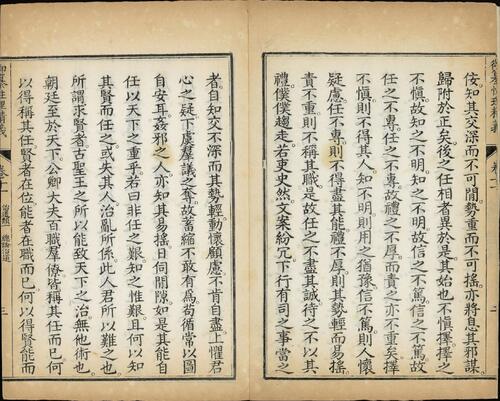 御纂性理精義
卷十
二
佞知其交深而不可閒勢重而不可搖亦將息其邪謀
歸附於正矣後之任相者異於是其始也不慎擇擇之
不慎故知之不明知之不明故信之不篤信之不篤故
任之不專任之不專故禮之不厚而責之亦不重矣擇
不慎則不得其人知不明則用之猶豫信不篤則人懷
疑慮任不專則不得盡其能禮不厚則其勢輕而易搖
責不重則不稱其職是故任之不盡其誠待之不以其
禮僕僕趨走若吏史然文案紛冗下行有司之事當之
者自知交不深而其勢輕動懷顧慮不肯自盡上懼君
心之疑下虞羣議之奪故蓄縮不敢有為苟循常以圖
自安耳姦邪之人亦知其易搖日伺閒隙如是其能自
任以天下之重乎若曰非任之艱知之惟艱且何以知
其賢而任之或失其人治亂所係此人君所以難之也
所謂求賢者古聖王之所以能致天下之治無他術也
朝廷至於天下公卿大夫百職羣僚皆稱其任而已何
以得稱其任賢者在位能者在職而已何以得賢能而
御纂性理精義
卷十一
治道類
總論治道
三